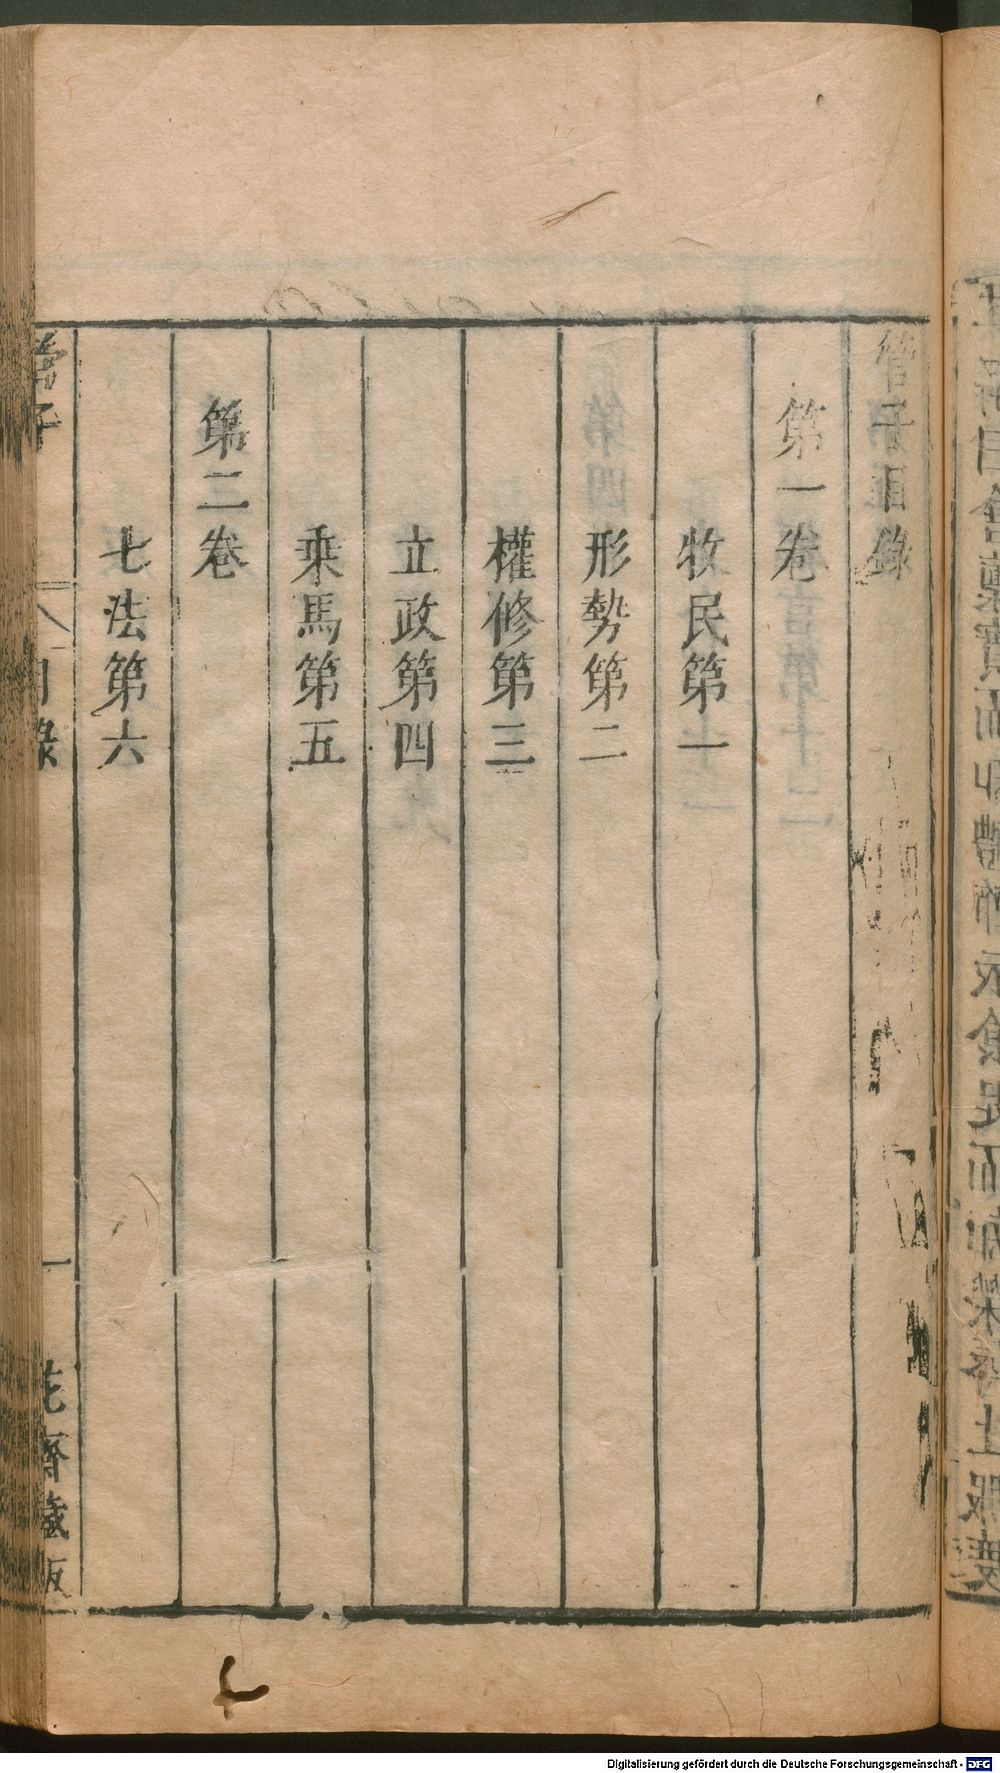 管子目錄
第一卷
牧民第一
形勢第二
權修第三
立政第四
乗馬第五
第二卷
七法第六
管子
目錄
一
花齋藏版
Digitalisierung gefördert durch die Deutsche Forschungsgemeinschaft - DFG